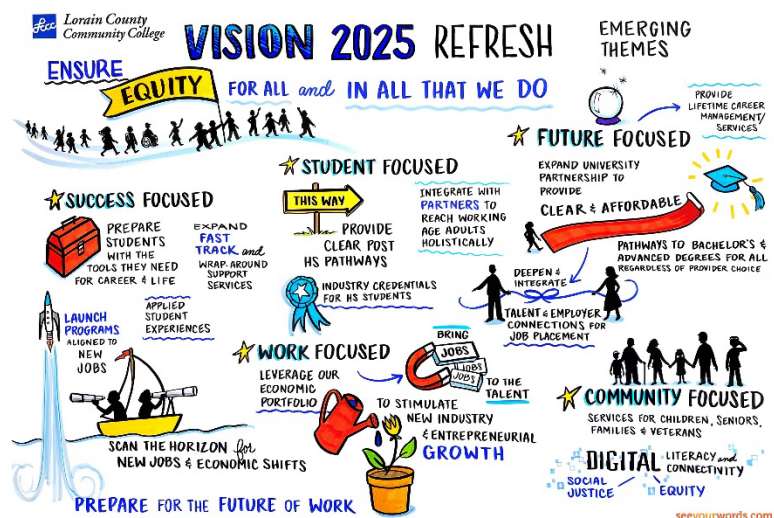 lccc
Lorain County
Community College
VISION 2025 REFRESH
EMERGING
THEMES
ENSURE
EQUITY
FOR ALL and IN ALL THAT WE DO
PROVIDE
LIFETIME CAREER
MANAGEMENT/
SERVICES
FUTURE FOCUSED
EXPAND UNIVERSITY
PARTNERSHIP TO
PROVIDE
CLEAR & AFFORDABLE
PATHWAYS TO BACHELOR'S &
ADVANCED DEGREES FOR ALL
REGARDLESS OF PROVIDER CHOICE
DEEPEN &
INTEGRATE
TALENT & EMPLOYER
CONNECTIONS FOR
JOB PLACEMENT
STUDENT FOCUSED
THIS WAY
PROVIDE
CLEAR POST
HS PATHWAYS
INTEGRATE WITH
PARTNERS TO
REACH WORKING
AGE ADULTS
HOLISTICALLY
INDUSTRY CREDENTIALS
FOR HS STUDENTS
SUCCESS FOCUSED
PREPARE
STUDENTS
WITH THE
TOOLS THEY NEED
FOR CAREER & LIFE
EXPAND
FAST
TRACK and
WRAP-AROUND
SUPPORT
SERVICES
LAUNCH
PROGRAMS
ALIGNED TO
NEW
JOBS
APPLIED
STUDENT
EXPERIENCES
SCAN THE HORIZON for
NEW JOBS & ECONOMIC SHIFTS
PREPARE FOR THE FUTURE OF WORK
WORK FOCUSED
LEVERAGE OUR
ECONOMIC
PORTFOLIO
BRING
JOBS
JOBS
JOBS
TO THE
TALENT
TO STIMULATE
NEW INDUSTRY
& ENTREPRENEURIAL
GROWTH
COMMUNITY FOCUSED
SERVICES FOR CHILDREN, SENIORS,
FAMILIES & VETERANS
DIGITAL LITERACY and
CONNECTIVITY
SOCIAL
JUSTICE
EQUITY
seeyourwords.com